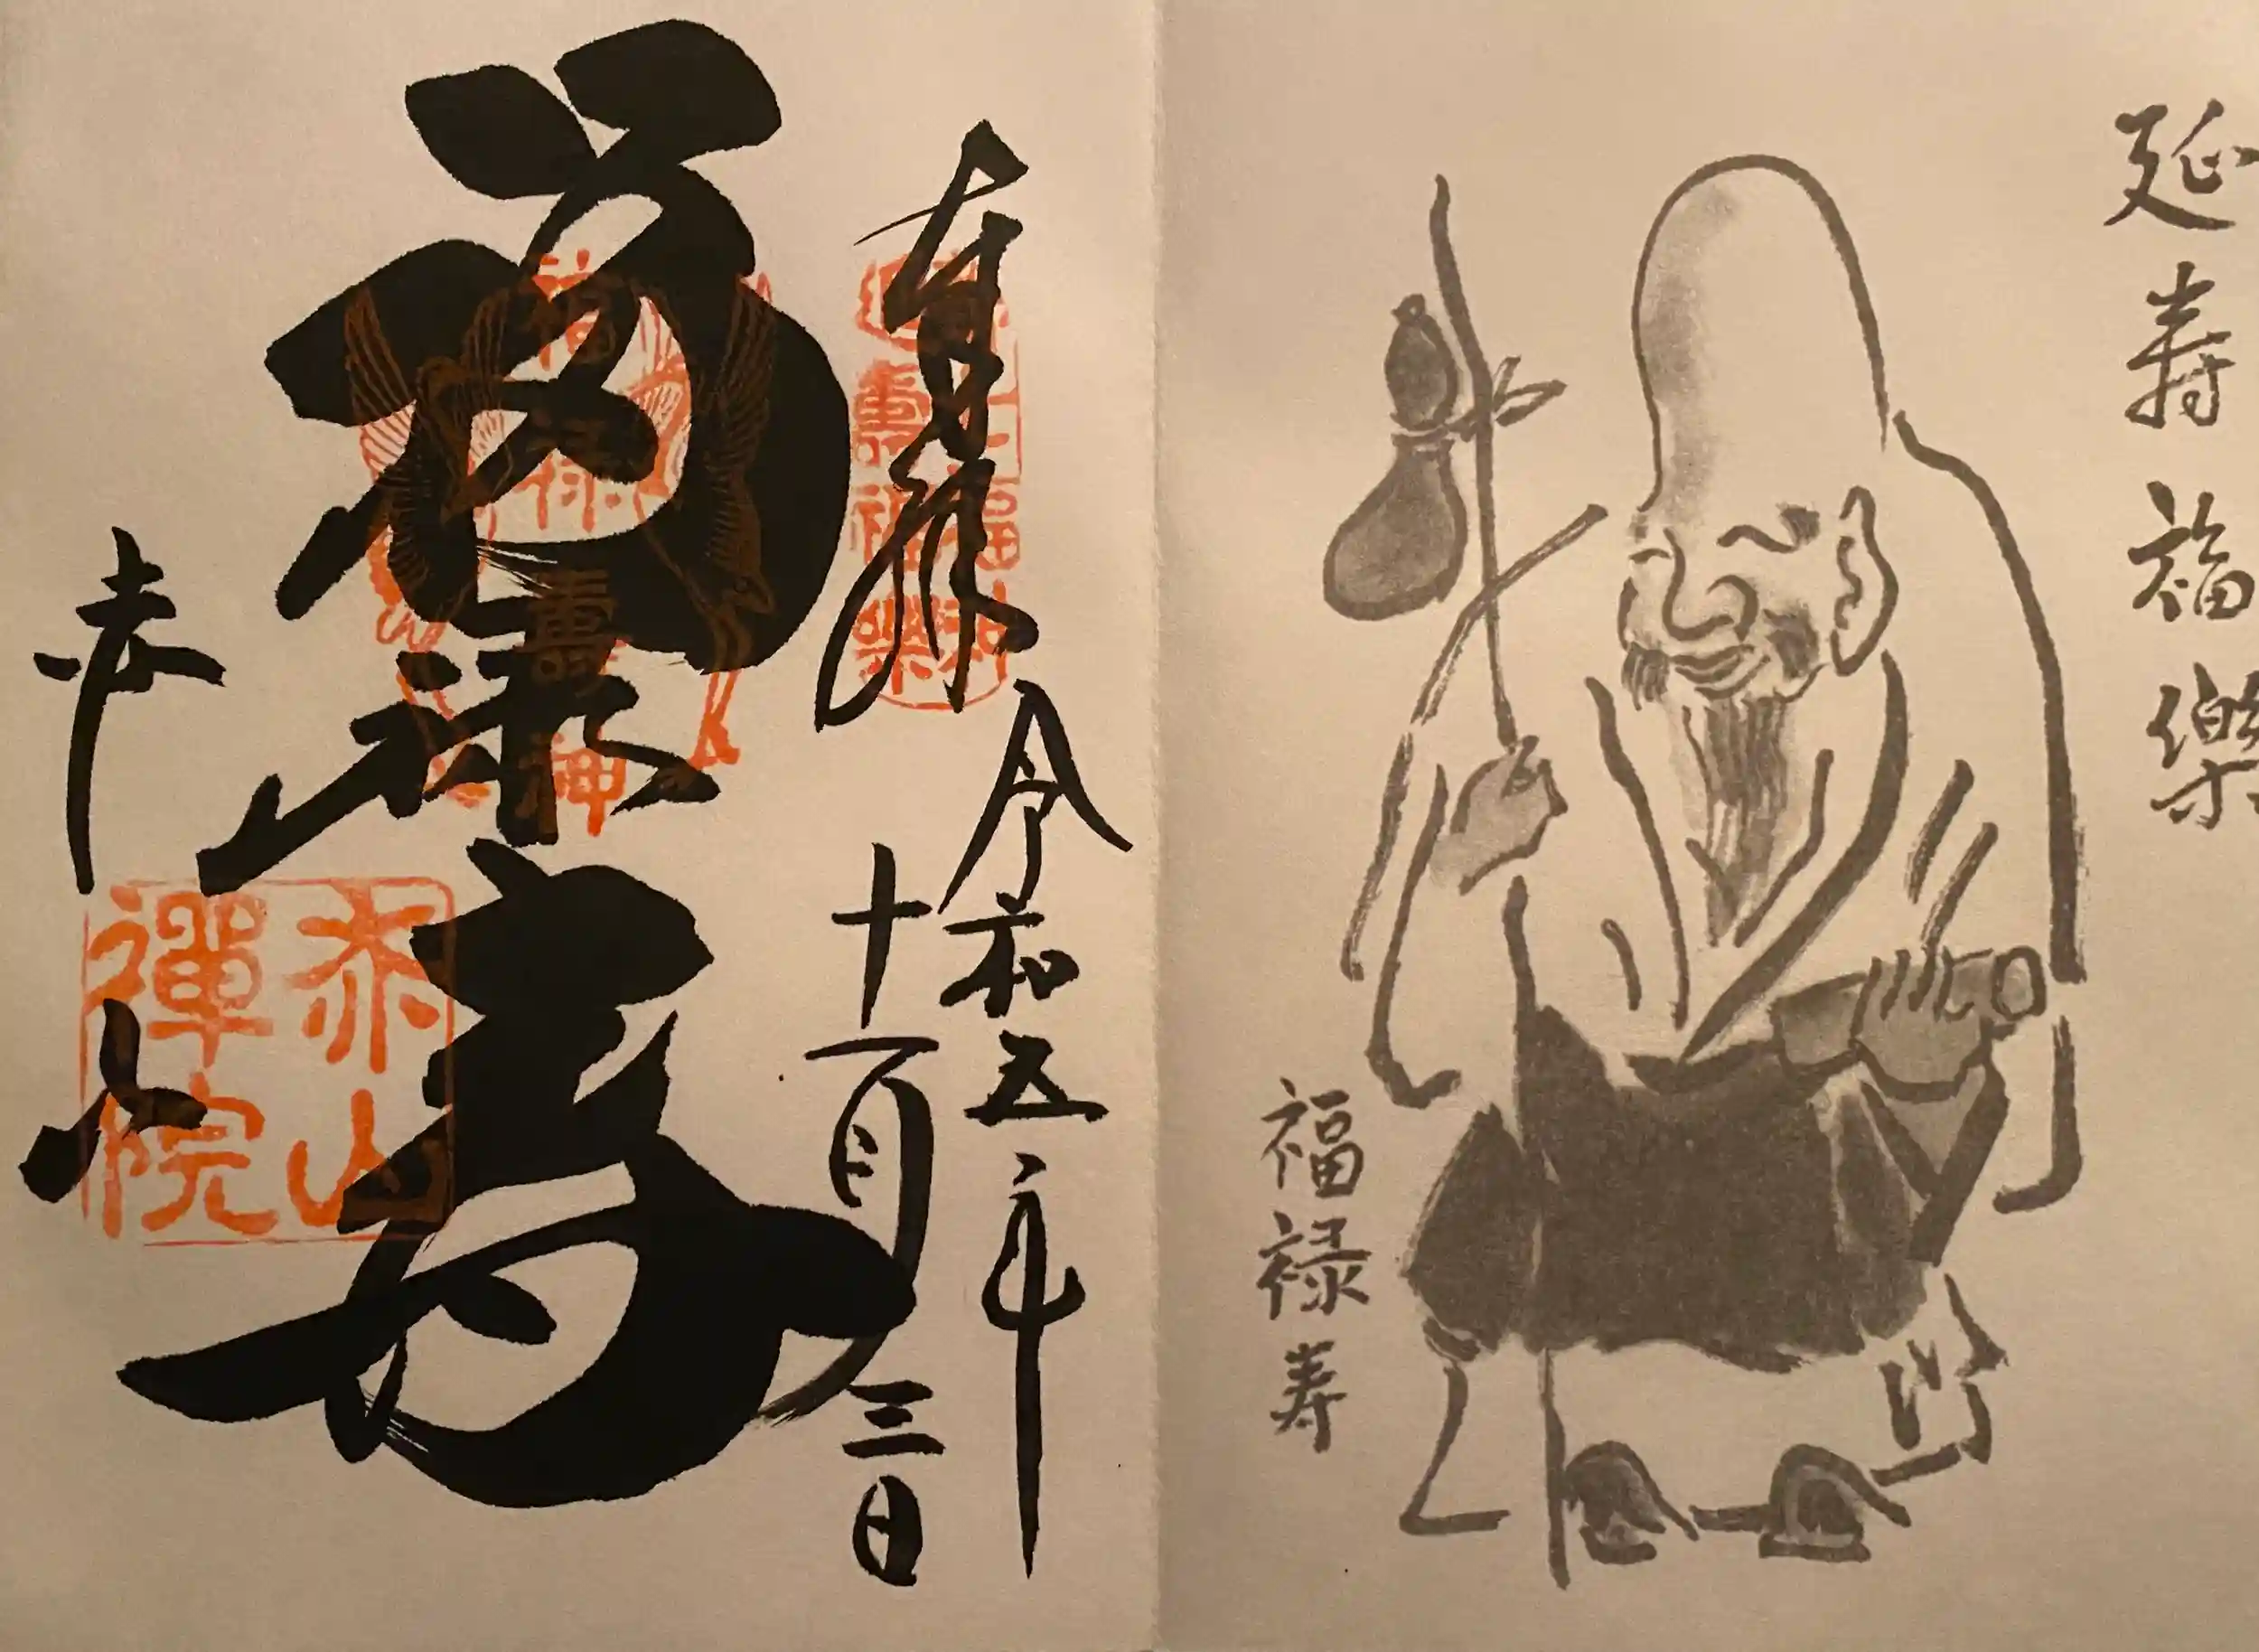 延寿福樂
福禄寿
奉拝
都七福神
延壽福樂
令和五年
十一月三日
福禄寿
福禄壽神
赤山
赤山
禪院